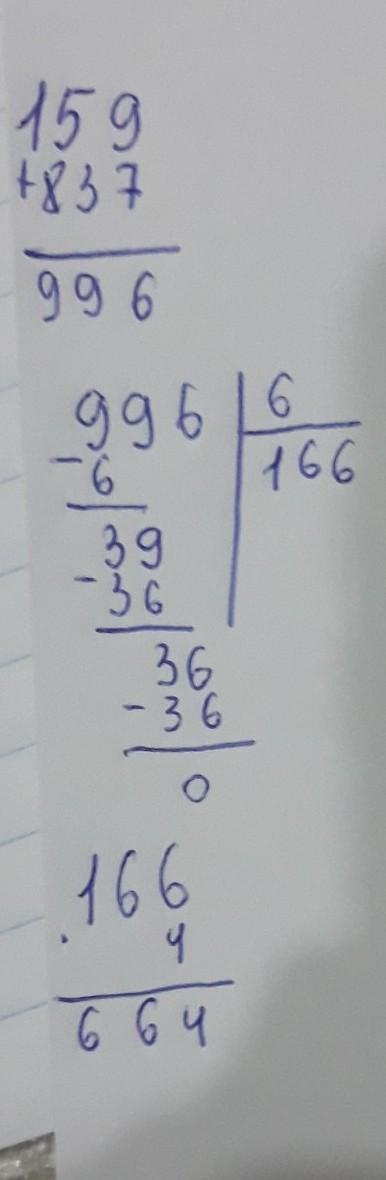 159
+837
996
996 | 6
-6 166
39
-36
36
-36
0
166
. 4
664